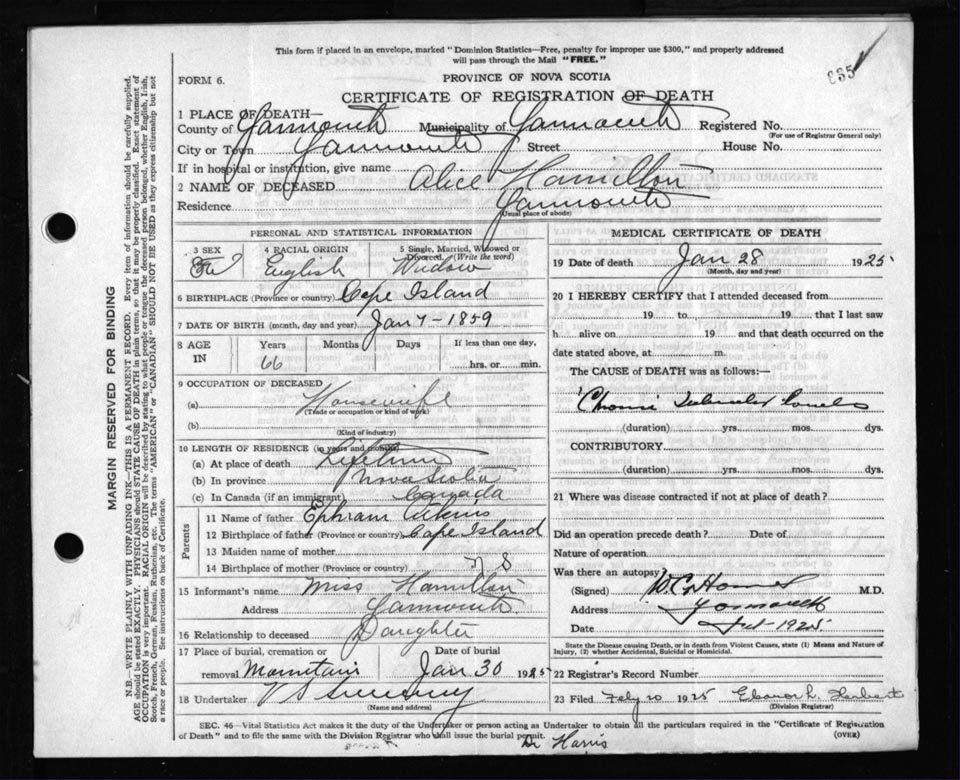 This form if placed in an envelope, marked "Dominion Statistics—Free, penalty for improper use $300," and properly addressed
will pass through the Mail "FREE."
635
FORM 6.
PROVINCE OF NOVA SCOTIA
CERTIFICATE OF REGISTRATION OF DEATH
1 PLACE OF DEATH—
County of Yarmouth Municipality of Yarmouth Registered No.
(For use of Registrar General only)
City or Town Yarmouth Street House No.
If in hospital or institution, give name
2 NAME OF DECEASED Alice Hamilton
Residence Yarmouth
(Usual place of abode)
PERSONAL AND STATISTICAL INFORMATION
3 SEX 4 RACIAL ORIGIN 5 Single, Married, Widowed or Divorced. (Write the word)
English Widow
6 BIRTHPLACE (Province or country) Cape Island
7 DATE OF BIRTH (month, day and year) Jan 7 - 1859
8 AGE IN Years Months Days If less than one day,
66 hrs. or min.
9 OCCUPATION OF DECEASED
(a) Housewife
(Trade or occupation or kind of work)
(b)
(Kind of industry)
10 LENGTH OF RESIDENCE (in years and months)
(a) At place of death Lifetime
(b) In province Nova Scotia
(c) In Canada (if an immigrant) Canada
Parents
11 Name of father Ephram
12 Birthplace of father (Province or country) Cape Island
13 Maiden name of mother
14 Birthplace of mother (Province or country) N S
15 Informant's name Miss Hamilton
Address Yarmouth
16 Relationship to deceased Daughter
17 Place of burial, cremation or removal Date of burial
Mountain Jan 30 1925
18 Undertaker V S Sweeny
(Name and address)
MEDICAL CERTIFICATE OF DEATH
19 Date of death Jan 28 1925
(Month, day and year)
20 I HEREBY CERTIFY that I attended deceased from
19 to 19 that I last saw
h alive on 19 and that death occurred on the
date stated above, at m.
The CAUSE of DEATH was as follows:—
Chronic
(duration) yrs. mos. dys.
CONTRIBUTORY
(duration) yrs. mos. dys.
21 Where was disease contracted if not at place of death?
Did an operation precede death? Date of
Nature of operation
Was there an autopsy?
(Signed) M.D.
Address Yarmouth
Date Feb - 1925
State the Disease causing Death, or in death from Violent Causes, state (1) Means and Nature of
Injury, (2) whether Accidental, Suicidal or Homicidal.
22 Registrar's Record Number
23 Filed Feby 20 1925 Eleanor L. Herbert
(Division Registrar)
SEC. 46—Vital Statistics Act makes it the duty of the Undertaker or person acting as Undertaker to obtain all the particulars required in the "Certificate of Registration
of Death" and to file the same with the Division Registrar who shall issue the burial permit. (OVER)
Dr Harris
MARGIN RESERVED FOR BINDING
N.B.—WRITE PLAINLY WITH UNFADING INK—THIS IS A PERMANENT RECORD. Every item of information should be carefully supplied.
AGE should be stated EXACTLY. PHYSICIANS should STATE CAUSE OF DEATH in plain terms, so that it may be properly classified. Exact statement of
OCCUPATION is very important. RACIAL ORIGIN will be described by stating to what people or tongue the deceased person belonged, whether English, Irish,
Scotch, French, German, Russian, Ruthenian, etc. The terms "AMERICAN" or "CANADIAN" SHOULD NOT BE USED as they express citizenship but not
a race or people. See instructions on back of Certificate.